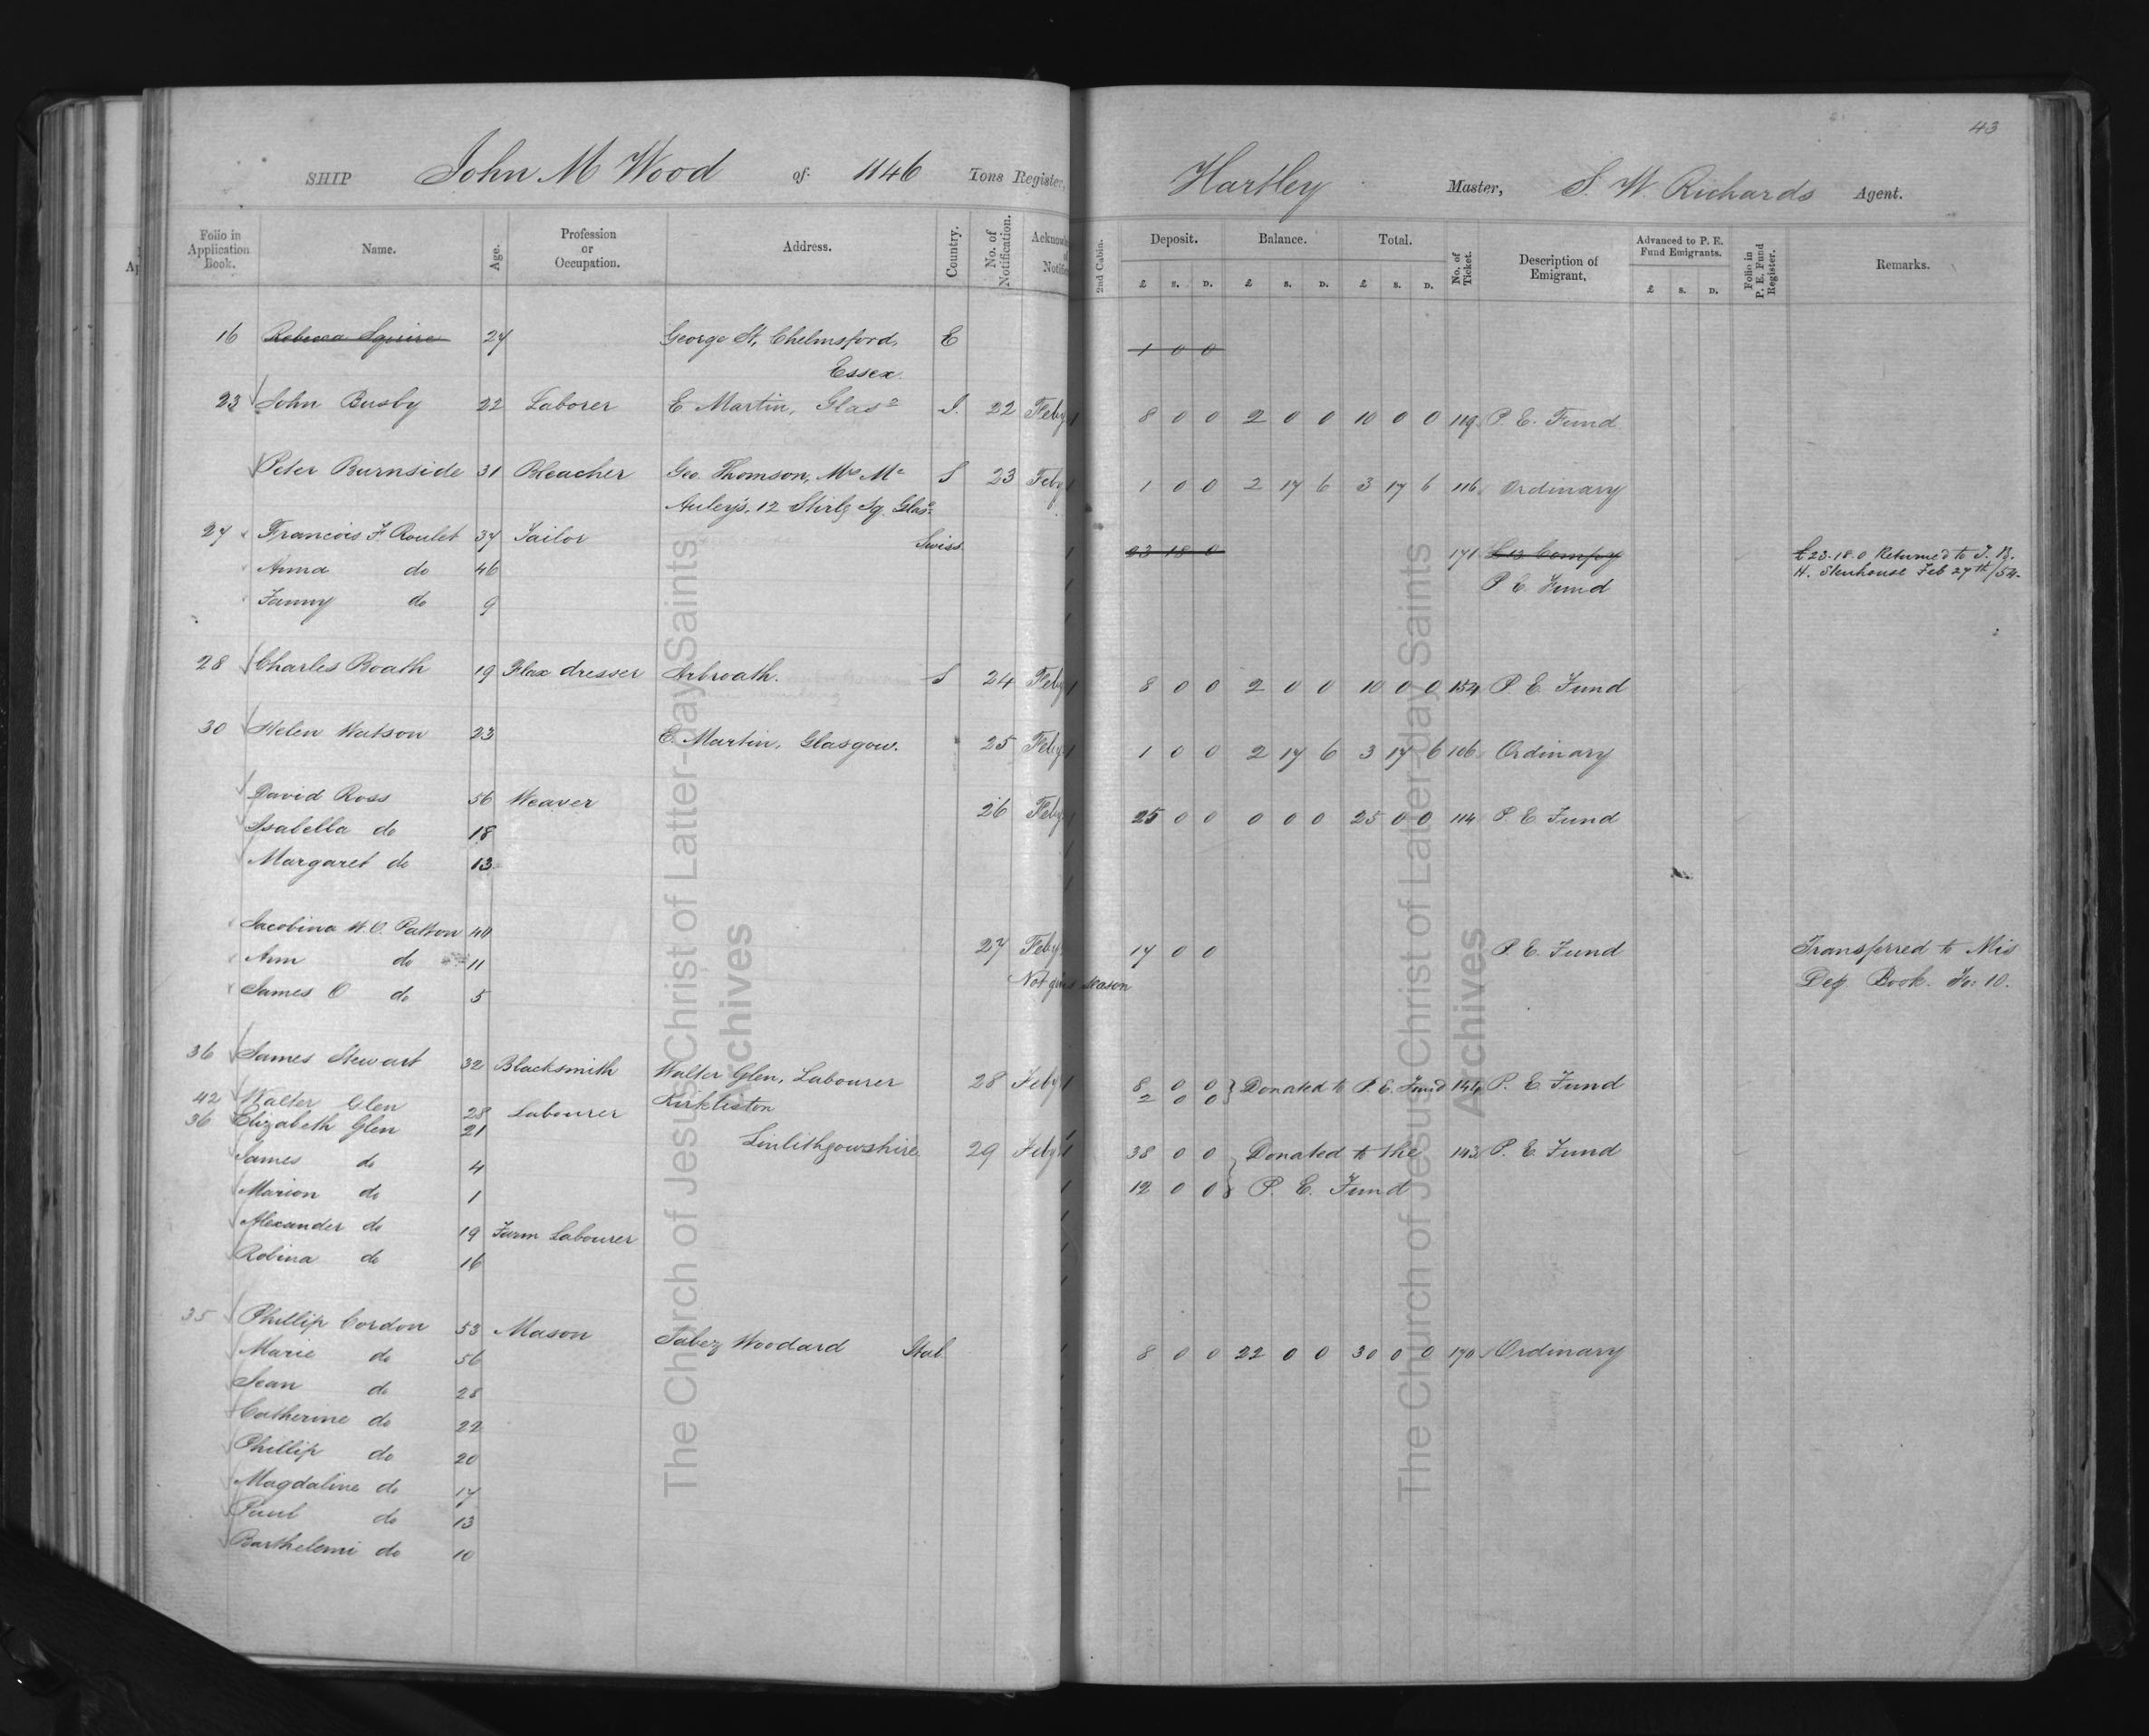 43
SHIP John M Wood of 1146 Tons Register, Hartley Master, S. W. Richards Agent.
Folio in Application Book. Name. Age. Profession or Occupation. Address. Country. No. of Notification. 2nd Cabin. Deposit. Balance. Total. No. of Ticket. Description of Emigrant. Advanced to P. E. Fund Emigrants. Folio in P. E. Fund Register. Remarks.
£ S. D. £ S. D. £ S. D. £ S. D.
16 Rebecca Squire 27 George St, Chelmsford, E 1 0 0
Essex.
23 John Busby 22 Laborer E. Martin, Glaso S. 22 Feby 1 8 0 0 2 0 0 10 0 0 119 P. E. Fund
Peter Burnside 31 Bleacher Geo Thomson, Mrs Mc S 23 Feby 1 1 0 0 2 17 6 3 17 6 116 Ordinary
Auley's, 12 Stirlg Sq. Glaso
27 Francois F. Roulet 37 Tailor Swiss 1 23 18 0 171 £13 Compy £23.18.0 Returned to T. B.
Anna do 46 1 P E Fund H. Stenhouse Feb 27th/54.
Fanny do 9
28 Charles Roath 19 Flax dresser Arbroath. S 24 Feby 1 8 0 0 2 0 0 10 0 0 154 P. E. Fund
30 Helen Watson 23 E. Martin, Glasgow. 25 Feby 1 1 0 0 2 17 6 3 17 6 106 Ordinary
David Ross 56 Weaver 26 Feby 1 25 0 0 0 0 0 25 0 0 114 P. E. Fund
Isabella do 18
Margaret do 13
Jacobina W. O. Patton 40 27 Feby 17 0 0 P. E. Fund Transferred to Mis
Ann do 11
James O do 5 Season Dep Book. Fo: 10.
36 James Stewart 32 Blacksmith Walter Glen, Labourer 28 Feby 1 8 0 0 Donated to P. E. Fund 144 P. E. Fund
42 Walter Glen 28 Labourer Kirkliston 2 0 0
36 Elizabeth Glen 21 Linlithgowshire 29 Feby 1 38 0 0 Donated to the 143 P. E. Fund
James do 4
Marion do 1 12 0 0 P. E. Fund
Alexander do 19 Farm Labourer
Robina do 16
35 Phillip Cordon 53 Mason Jabez Woodard Ital. 8 0 0 22 0 0 30 0 0 170 Ordinary
Marie do 56
Jean do 28
Catherine do 22
Phillip do 20
Magdaline do 17
Paul do 13
Barthelemi do 10
The Church of Jesus Christ of Latter-day Saints
Archives
The Church of Jesus Christ of Latter-day Saints
Archives